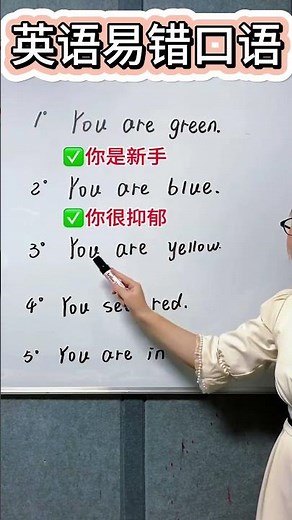 英语易错口语
1° You are green.
✅你是新手
2° You are blue.
✅你很抑郁
3° You are yellow.
4° You red.
5° You are in